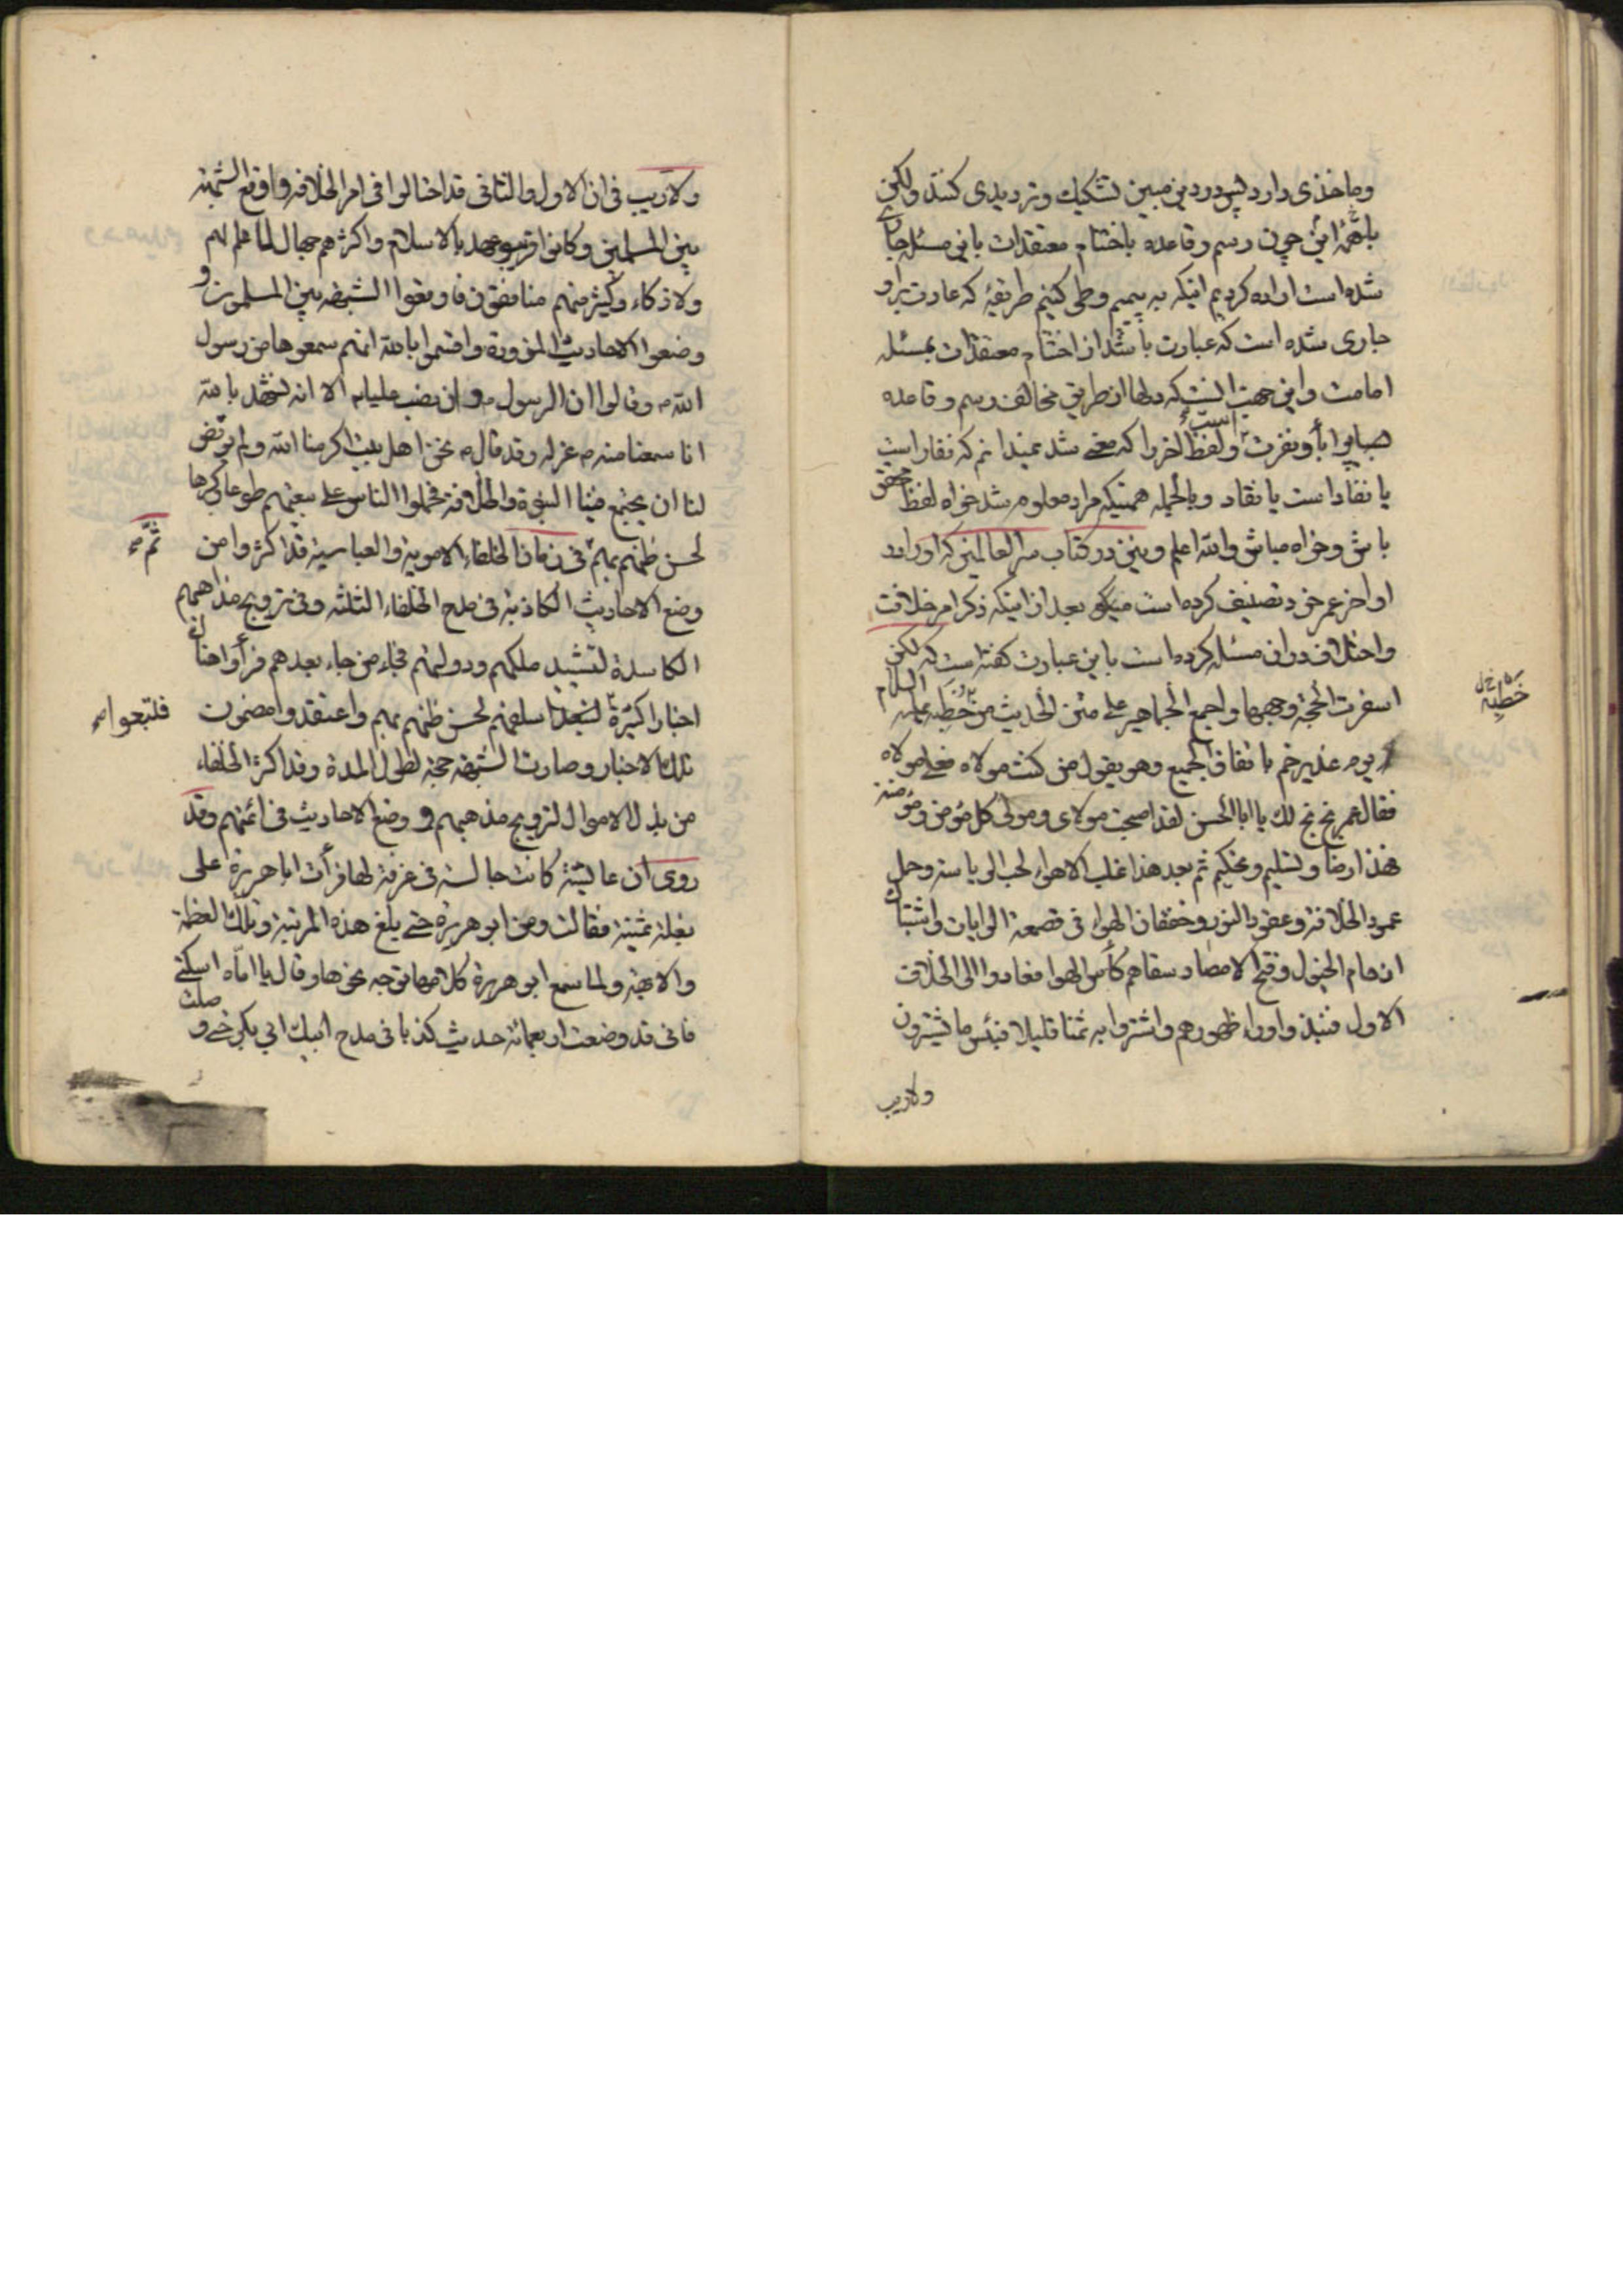 وماخذی دارد پس در دین مبین تشکیک و تردیدی کنند ولکن
با همهٔ این چون رسم و قاعده باختتام معتقدات باین مسئله جاری
شده است اراده کردیم اینکه به پیمیم وطی کنیم طریقهٔ که عادت براو
جاری شده است که عبارت باشد از اختتام معتقدات بمسئله
امامت واین جهت انست که دلها از طریق مخالف رسم و قاعده
اباونفرت ولفظ اخررا که معنی شد نمیدانم که نقار است
یا نفاد است یا نقاد وبالجمله همینکه مراد معلوم شد خواه لفظ محقق
باش وخواه مباش والله اعلم ونیز در کتاب سر العالمین که اورا در
اواخر عمر خود تصنیف کرده است میگوید بعد از اینکه ذکر امر خلافت
واختلاف در ان مسئله کرده است باین عبارت گفته است که لکن
اسفرت الحجة وجهها واجمع الجماهیر علی متن الحدیث من خطبة علیه السلام
یوم غدیر خم باتفاق الجمیع وهو یقول من کنت مولاه فعلی مولاه
فقال عمر بخ بخ لك یا ابا الحسن لقد اصبحت مولای ومولی کل مؤمن ومؤمنة
فهذا رضا وتسلیم وتحکیم ثم بعد هذا غلب الاهواء لحب الریاسة وحمل
عمود الخلافة وعقود البنود وخفقان الهوی فی قعقعة الرایات واشتباك
ازدحام الخیول وفتح الامصار سقاهم کأس الهوا فعادوا الی الخلاف
الاول فنبذوا وراء ظهورهم واشتروا به ثمنا قلیلا فبئس ما یشترون
ولاریب
خطبه
ولاریب فی ان الاول والثانی قد احتالوا فی امر الخلافة واوقع الشبهة
بین المسلمین وکانوا قریب عهد بالاسلام واکثرهم جهال لا علم لهم
ولا ذکاء وکثیر منهم منافقون فاوقعوا الشبهة بین المسلمین و
وضعوا الاحادیث المزورة واقسموا بالله انهم سمعوها من رسول
الله ص وقالوا ان الرسول ص وان نصب علیا ع الا انه نشهد بالله
انا سمعنا منه ص عزله وقد قال ص نحن اهل بیت اکرمنا الله ولم یرض
لنا ان یجتمع فینا النبوة والخلافة فحملوا الناس علی بیعتهم طوعا وکرها
لحسن ظنهم بهم فی زمان الخلفاء الامویة والعباسیة قد اکثروا من
ثم
وضع الاحادیث الکاذبة فی مدح الخلفاء الثلثة وفی ترویج مذاهبهم
الکاسدة لتشیید ملکهم ودولتهم فجاء من جاء بعدهم فرأوا
اخبارا کثیرة لحسن ظنهم بهم واعتقدوا مضمون
فلتبعوا
تلك الاخبار وصارت الشبهة حجة لطول المدة وقد اکثر الخلفاء
من بذل الاموال لترویج مذهبهم و وضع الاحادیث فی ائمتهم وقد
روی ان عایشة کانت جالسة فی غرفة لها فرأت ابا هریرة علی
بغلة ثمینة فقالت ومن ابو هریرة حتی یبلغ هذه المرتبة وتلك العظمة
والابهة ولما سمع ابو هریرة کلامها توجه نحوها وقال یا اماه اسکتی
فانی قد وضعت اربعمائة حدیث کذبا فی مدح ابیك ابی بکر حتی وصلت